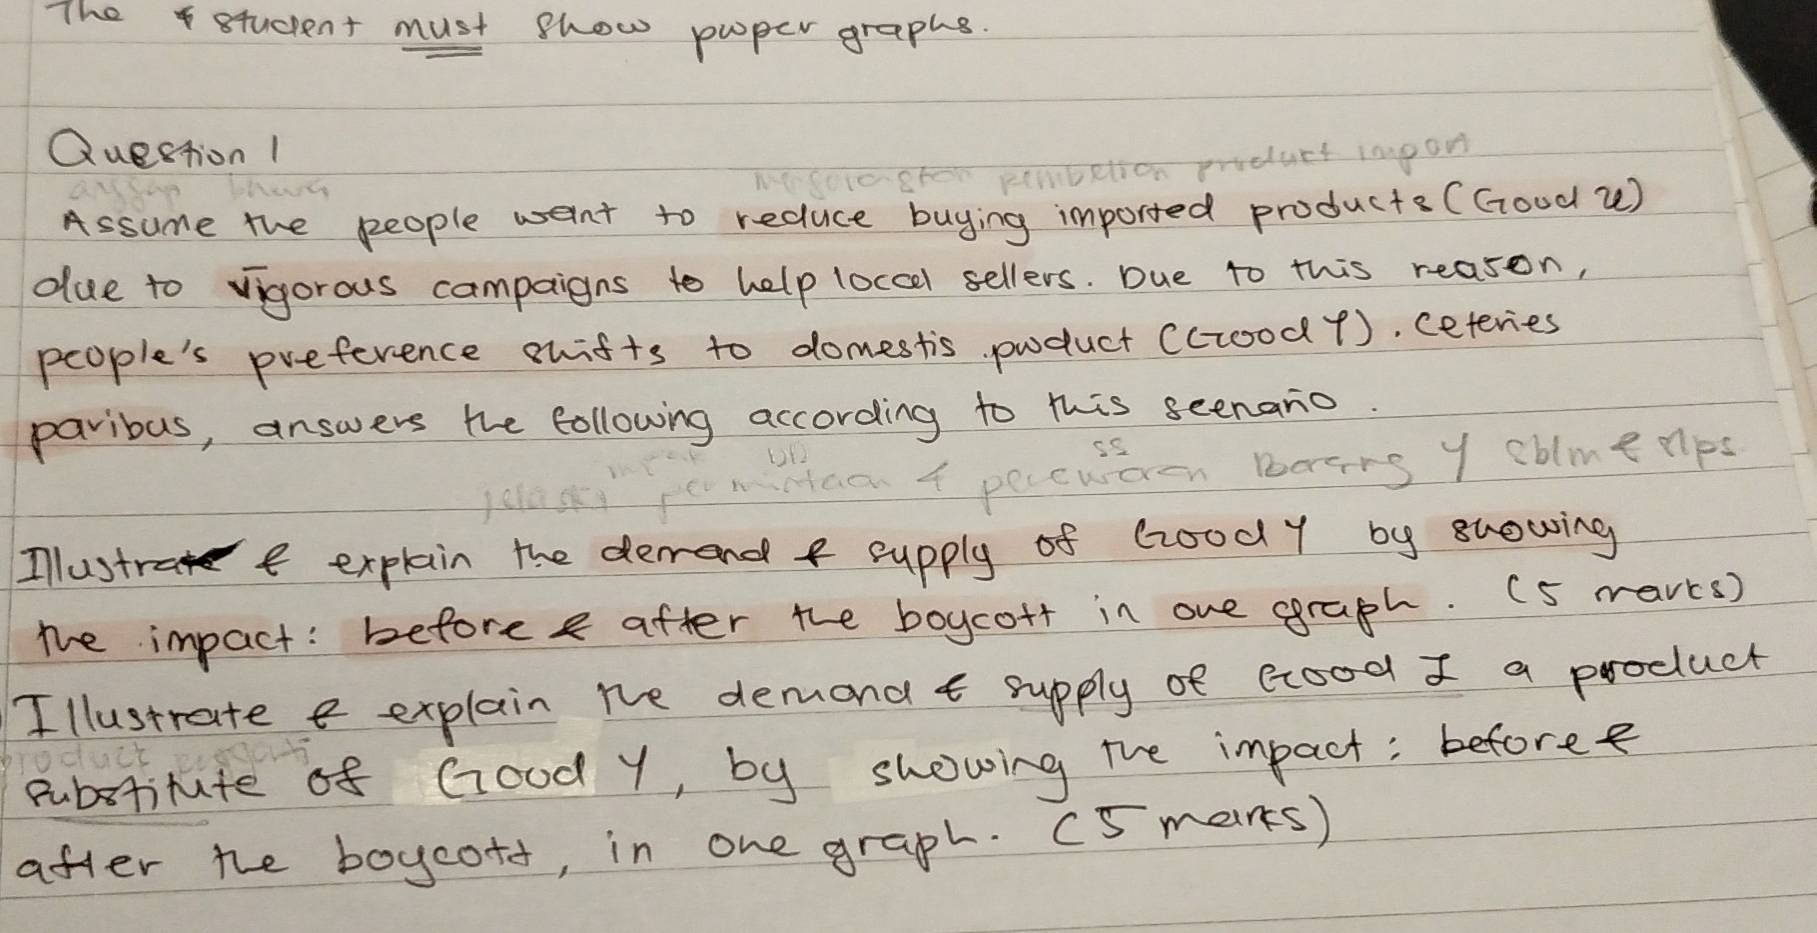 The student must show proper graphs.
Question 1
anggap bhawa
product import
Assume the people want to reduce buying imported products (Good U)
due to vigorous campaigns to help local sellers. Due to this reason,
people's preference shifts to domestis product (Good Y). ceteries
paribus, answers the following according to this scenario.
DD SS
Y sblm & slps
Illustrate & explain the demand & supply of Good Y by showing
the impact: before & after the boycott in one graph. (5 marks)
Illustrate & explain the demand & supply of Good I a product
product
substitute of Good Y, by showing the impact: before &
after the boycott, in one graph. (5 marks)